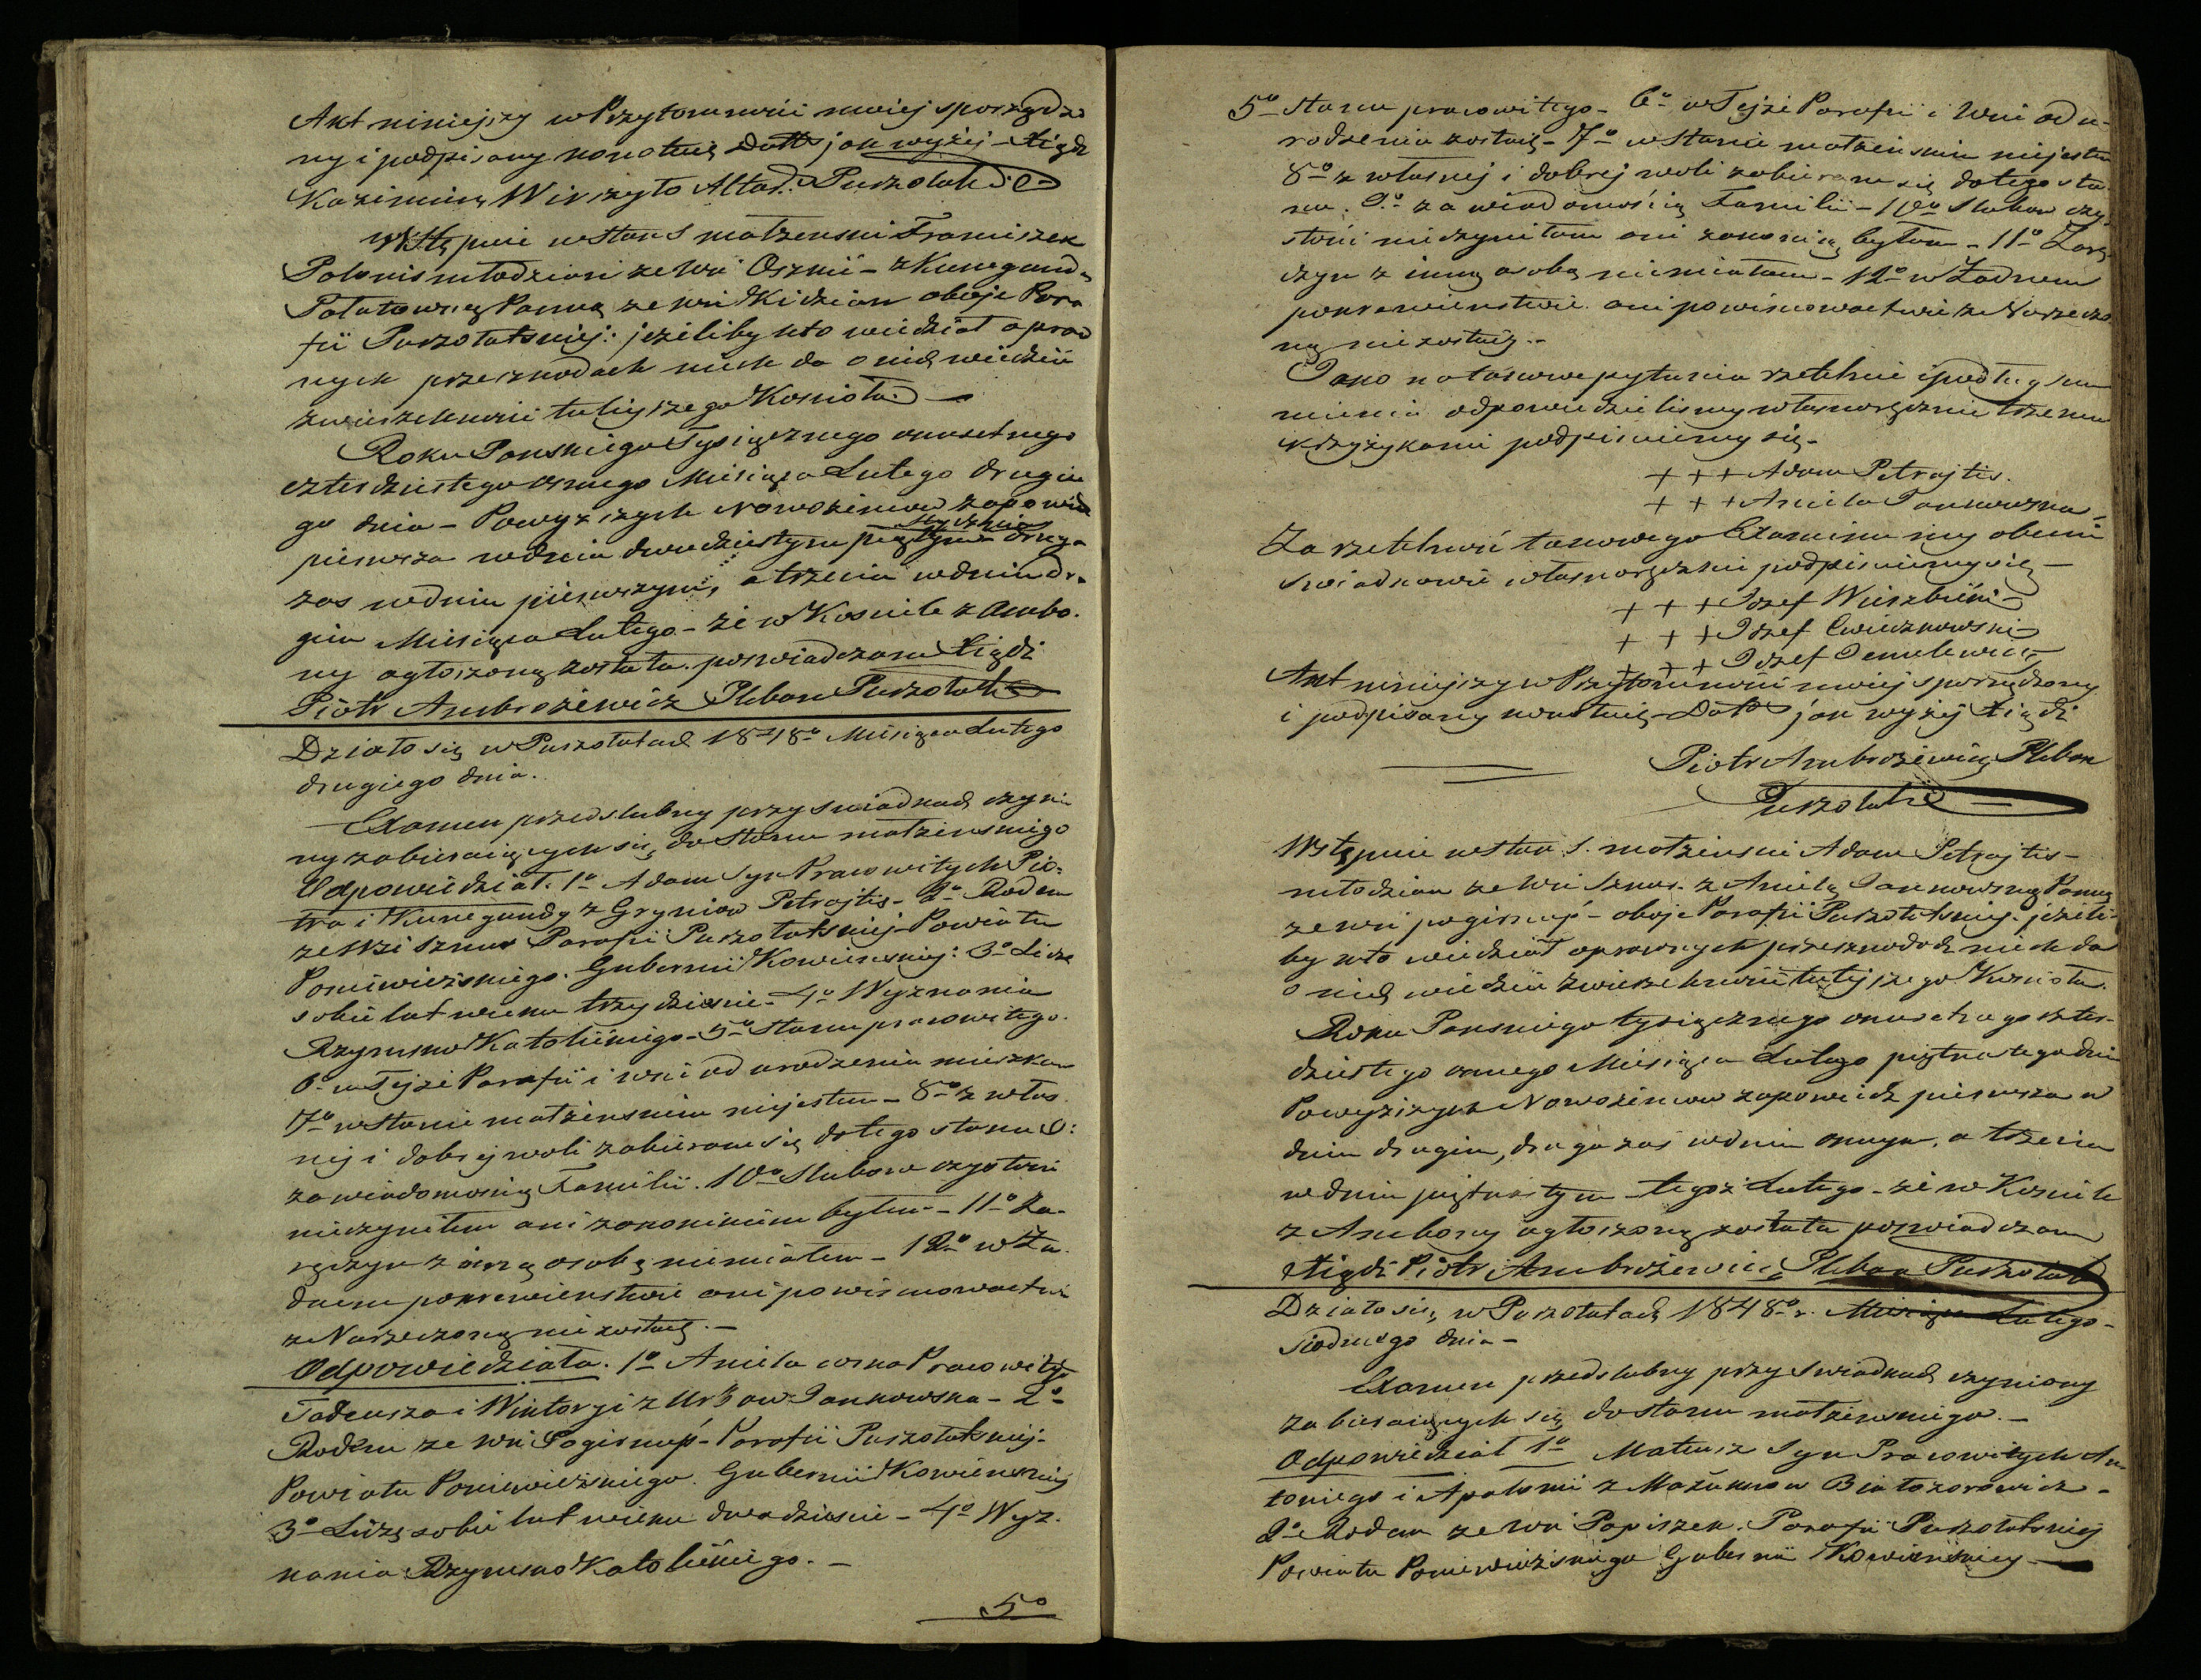 Akt niniejszy w Przytomności mojej sporządzo
ny i podpisany konotuię Datto jak wyżej Xiądz
Kazimierz Wirszyło Altar. Puszołatski
Wstępuie w stan S małżenski Franciszek
Polonis młodzian ze wsi Osznii - z Kunegundą
Panną ze wsi Kidzian oboje Para
fii Puszołatskiej: jeżeliby kto wiedział o praw
nych przeszkodach niech da o nich wiedzieć
zwierzchności tutejszego Kosciola
Roku Panskiego Tysiącznego osmsetnego
czterdziestego osmego Miesiąca Lutego drugie
go dnia - Powyższych Nowożencow zapowiedź
pierwsza w dniu dwudziestym piątym Stycznia druga
zas w dniu pierwszym, a trzecia w dniu dru
gim Miesiąca Lutego - że w Kosciele z Ambo
ny ogłoszoną została. poswiadczam Xiądz
Piotr Ambrożewicz Pleban Puszołatski
Działo się w Puszołatach 1848o Miesiąca Lutego
drugiego dnia.
Examen przedslubny przy swiadkach czynio
ny zabieraiących się do stanu małżenskiego
Odpowiedział. 1o Adam Syn Pracowitych Pio-
tra i Kunegundy z Gryniow Petrajtis - 2o Rodem
ze Wsi Sznur Parafii Puszołatskiej Powiatu
Poniewieżskiego. Gubernii Kowienskiej: 3o Liczę
sobie lat wieku trzydziescie. 4o Wyznania
Rzymsko Katolickiego - 5o Stanu pracowitego.
6o w Tejże Parafii i wsi od urodzenia mieszkam
7o w stanie małżenskim niejestem - 8o z włas
nej i dobrej woli zabieram się do tego stanu 9:
za wiadomoscią Familii. 10o Slubow czystosci
nieczyniłem ani zakonnikiem byłem - 11o Za-
ręczyn z inną osobą niemiałem - 12o w Ża-
dnem pokrewienstwie ani powinowactwie
z Narzeczoną nie zostaię. -
Odpowiedziała. 1o Aniela corka Pracowitych
Tadeusza i Wiktoryi z Jankowska - 2o
Rodem ze wsi Pogirnup - Parafii Puszołatskiej -
Powiatu Poniewieżskiego. Gubernii Kowienskiej
3o Liczę sobie lat wieku dwadziescie - 4o Wyz-
nania Rzymsko Katolickiego. -
5o
5o Stanu pracowitego - 6o w Tejże Parafii i Wsi od u-
rodzenia zostaię - 7o w Stanie małżenskim niejestem
8o z własnej i dobrej woli zabieram się do tego sta
nu. 9o za wiadomością Familii - 10o Slubow czy-
stosci nieczyniłam ani zakonnicą byłam - 11o Zarę-
czyn z inną osobą niemiałam - 12o w Żadnem
pokrewienstwie ani powinowactwie z Narzeczo
ną niezostaię. -
Jako na takowe pytania rzetelnie i podług su
mienia odpowiedzielismy własnoręcznie trzema
krzyżykami podpisuiemy się -
+ + + Adam Petrajtis.
+ + + Aniela Jankowska
Za rzetelność takowego Examinu my obecni
swiadkowie własnoręcznie podpisuiemy się -
+ + + Jozef Wierzbicki
+ + + Jozef Cwieczkowski
+ + + Jozef
Akt niniejszy w Przytomności mojej sporządzony
i podpisany konotuię Datto jak wyżej Xiądz
Piotr Ambrożewicz Pleban
Puszołatski
Wstępuie w stan S. małżenski Adam Petrajtis -
młodzian ze wsi Sznur. z Anielą Jankowską Panną
ze wsi pogirnup - oboje Parafii Puszołatskiej. jeżeli-
by kto wiedział o prawnych przeszkodach niech da
o nich wiedzieć zwierzchności tutejszego Kosciola.
Roku Panskiego tysiącznego osmsetnego czter-
dziestego osmego Miesiąca Lutego piętnastego dnia
Powyższych Nowożencow zapowiedź pierwsza w
dniu drugim, druga zaś w dniu osmym, a trzecia
w dniu piętnastym tegoż Lutego - że w Kosciele
z Ambony ogłoszoną została poswiadczam
Xiądz Piotr Ambrożewicz Pleban Puszołatski
Działo się w Puszołatach 1848o r. Miesiąca Lutego -
siodmego dnia -
Examen przedslubny przy swiadkach czyniony
zabieraiących się do stanu małżenskiego. -
Odpowiedział 1o Mateusz Syn Pracowitych An-
toniego i Apolonii z Białozorowicz -
2o Rodem ze wsi Popiszek. Parafii Puszołatskiej
Powiatu Poniewieżskiego Gubernii Kowienskiej -